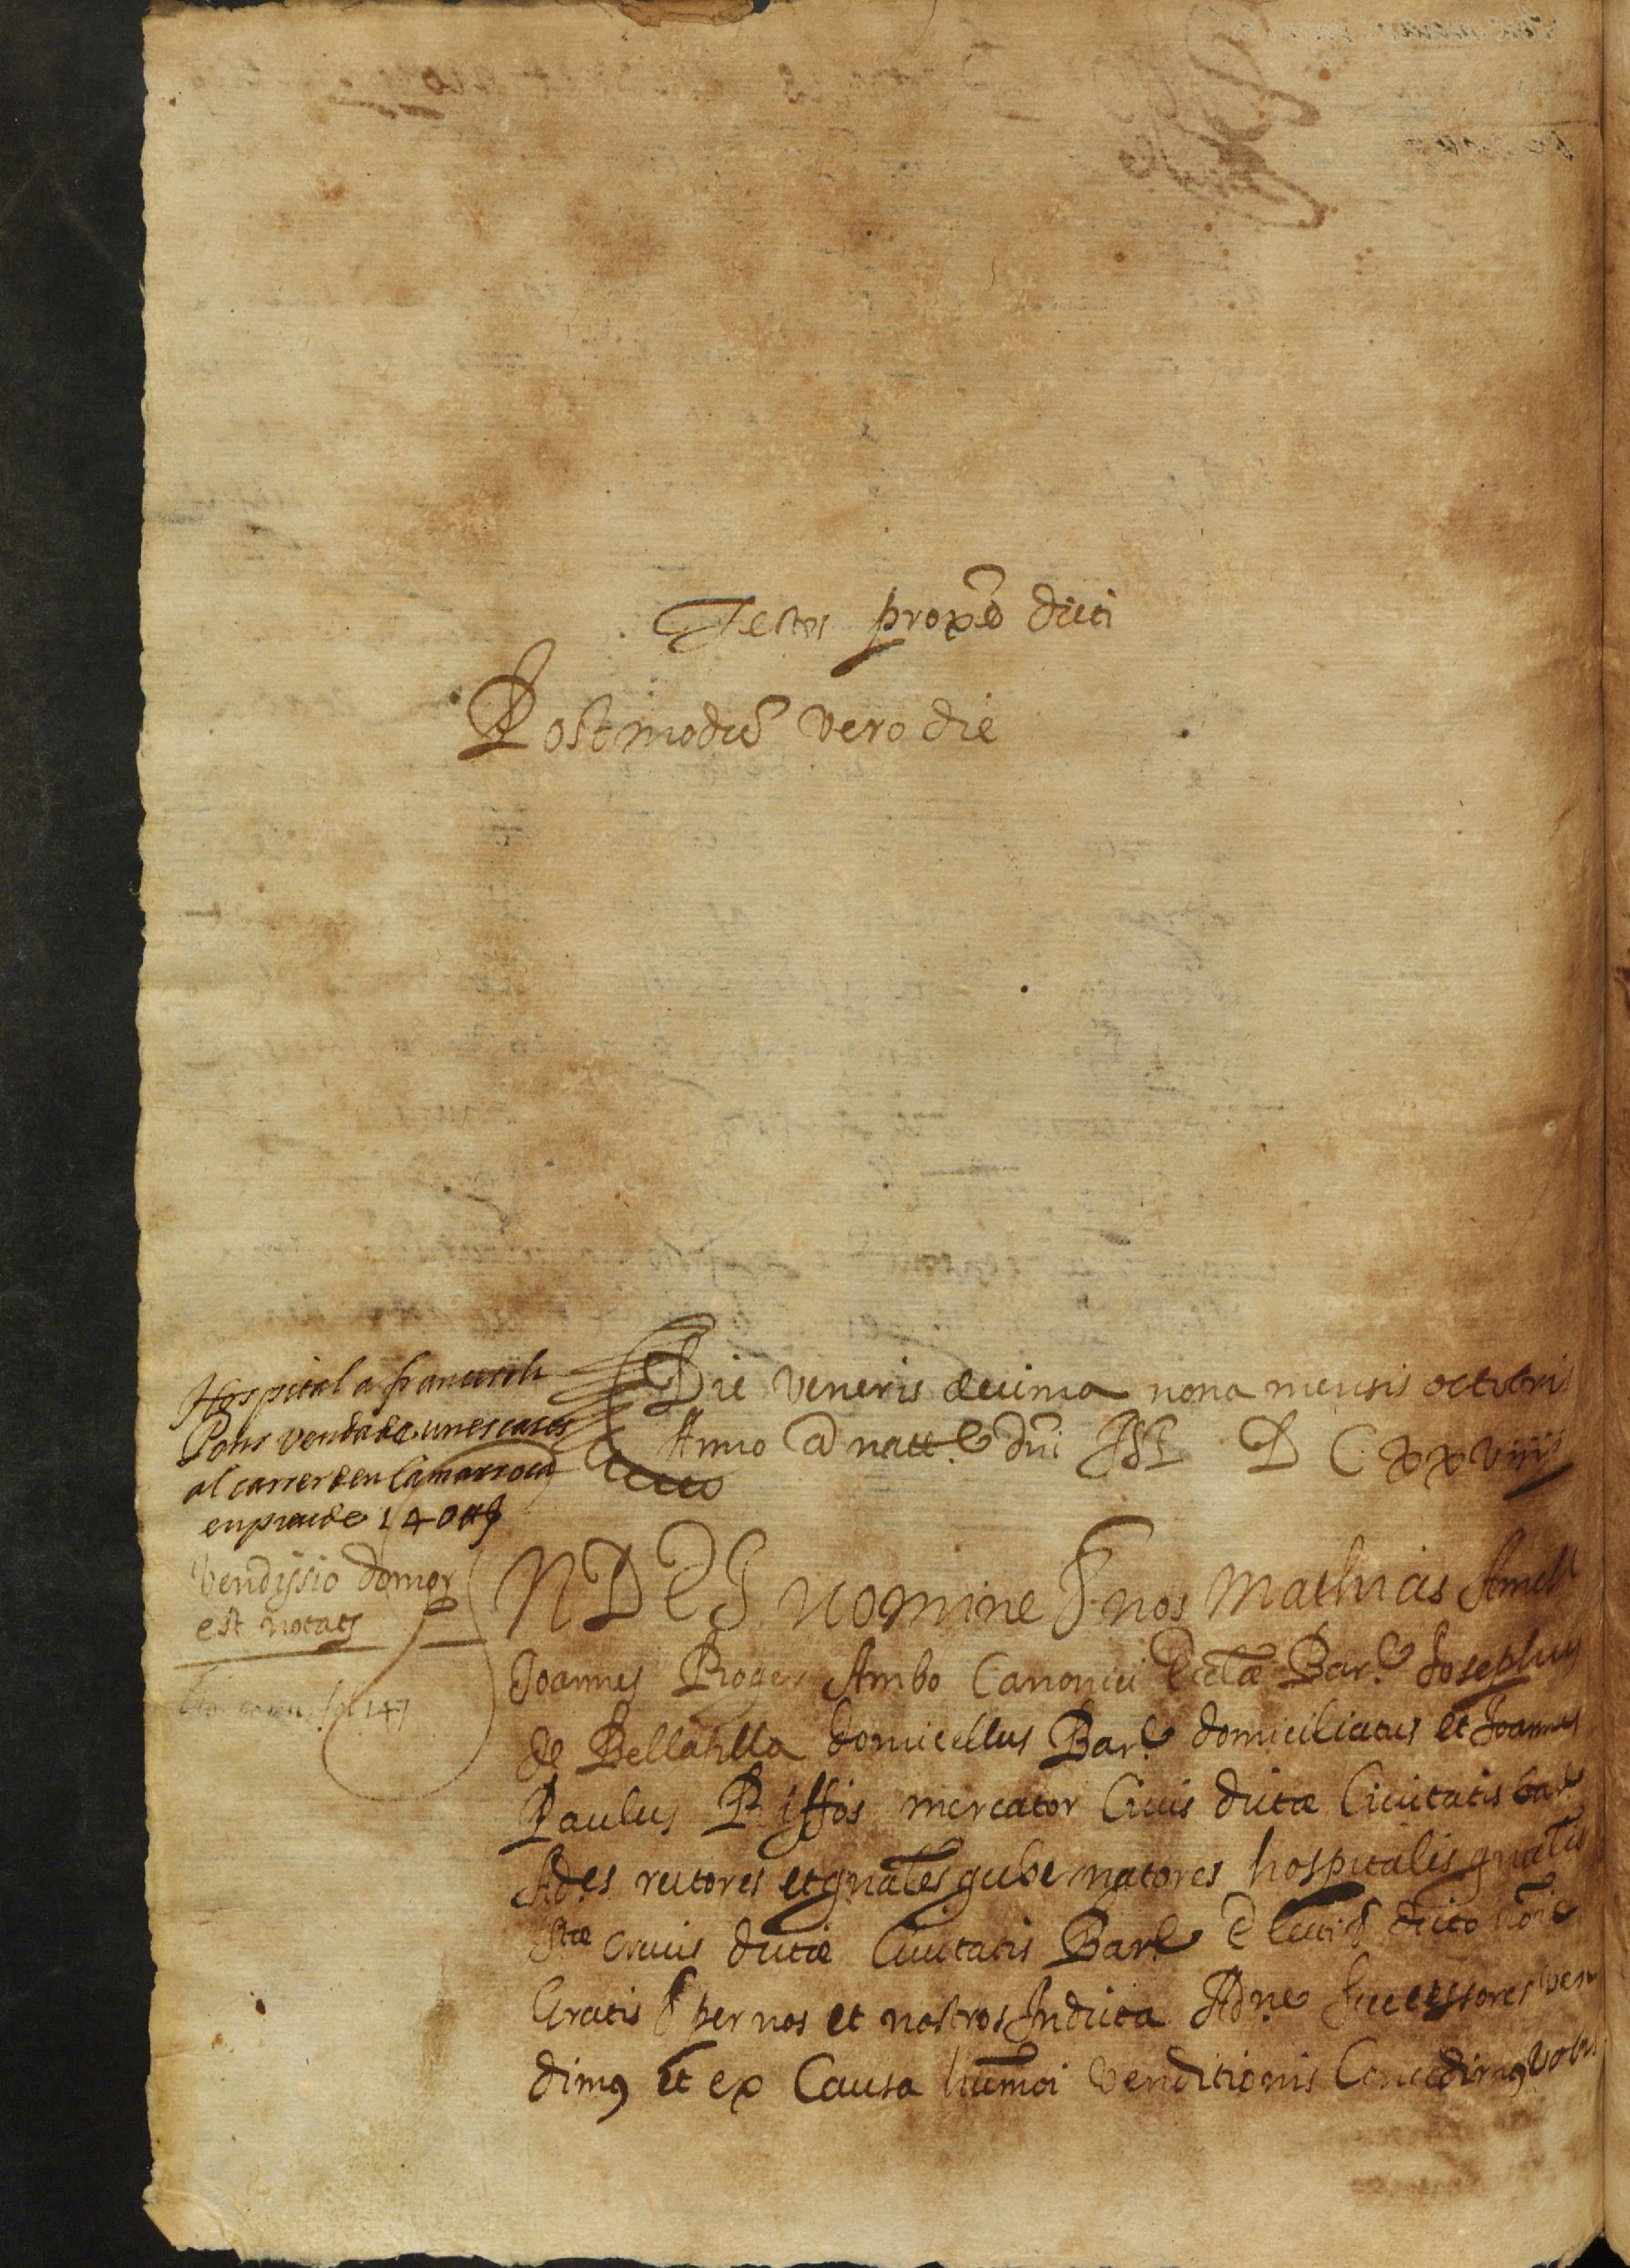 Testes proxe dicti
Postmodu vero die
Hospital a francesch
Pons venda de unes cases
al carrer den Camarroca
en preu de
Die veneris decima nona mensis octobris
Anno a natte dni D C xx viiii
Vendissio domor
est notat
fol 147
N D E S nomine nos Mathias Amell
Joannes Roger Ambo Canonici Ecclae Bare Josephus
de Bellafilla domicellus Bare domiciliatus et Joannes
Paulus Riffos mercator Civis dictae Civitatis Bare
Ades rectores et gnales gubernatores hospitalis gnalis
Stae Crucis dictae Civitatis Bare dicto noie
Gratis per nos et nostros In dicta Adne Successores ven
dimus et ex Causa huiusmoi Venditionis Concedimus vobis